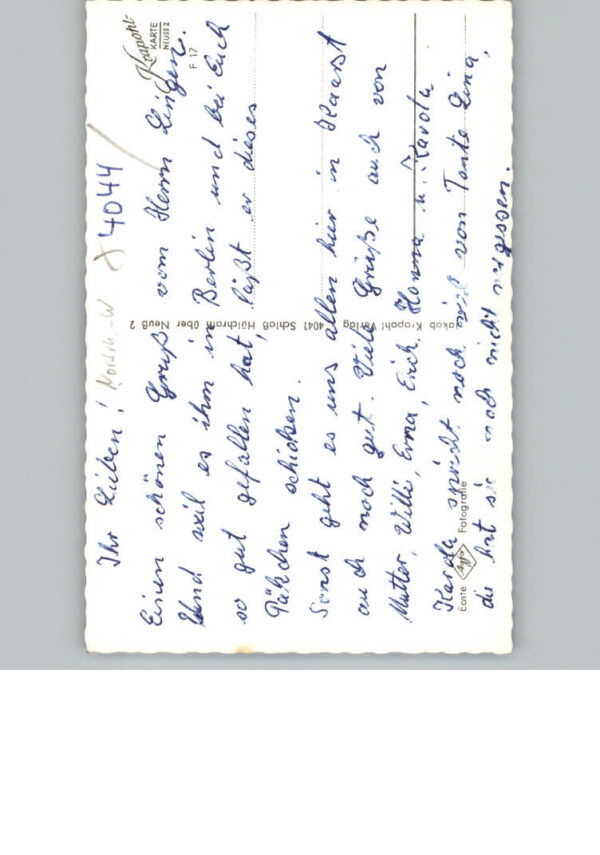 Ihr Lieben!
4044
Einen schönen Gruß vom Herrn Lingen.
Und weil es ihm in Berlin und bei Euch
so gut gefallen hat, läßt er dieses
Päkchen schicken.
Sonst geht es uns allen hier in Kaarst
auch noch gut. Viele Grüße auch von
Mutter, Willi, Erna, Erich, Hanna u. Karola
Karola spricht noch viel von Tante Lina,
die hat sie noch nicht vergessen.
Krapohl-
KARTE
NEUSS 2
F 17
Jakob Krapohl Verlag 4041 Schloß Hülchrath über Neuß 2
Echte Agfa Fotografie